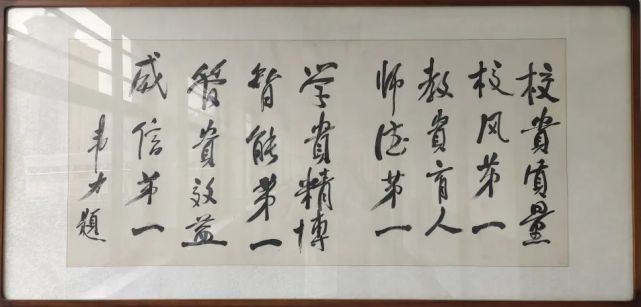 校贵质量
校风第一
教贵育人
师德第一
学贵精博
智能第一
管贵效益
威信第一
韦力题